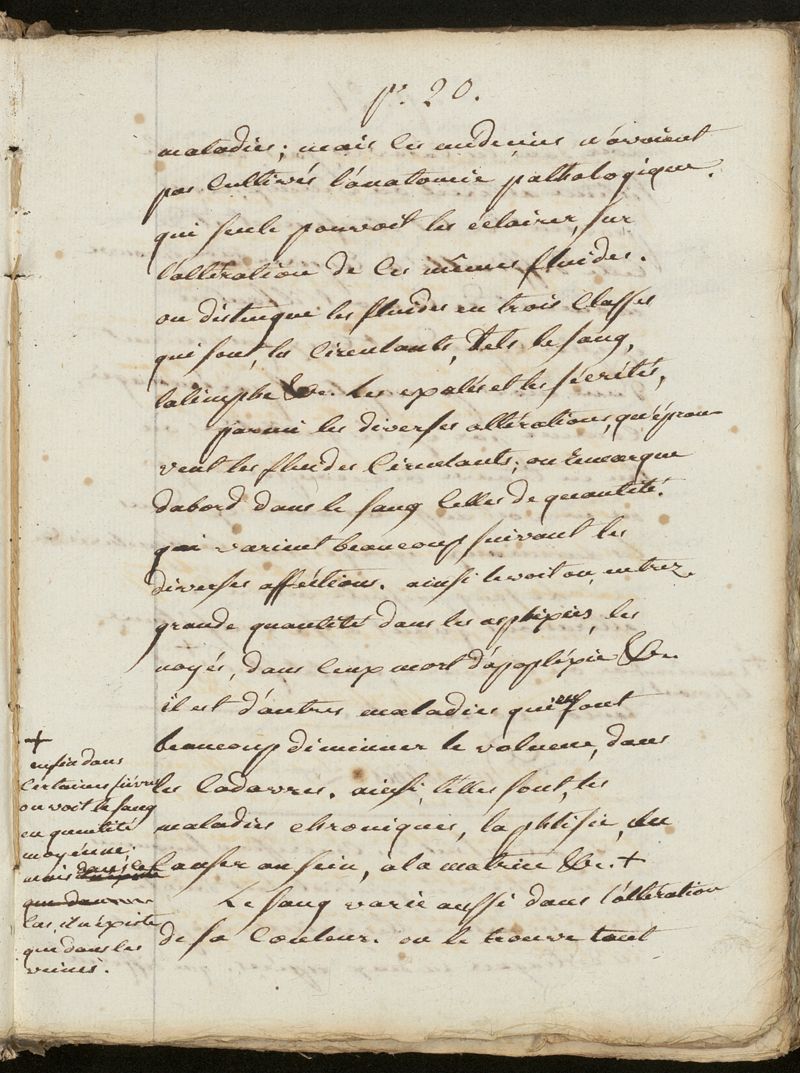 p. 20.
maladies; mais les médecins n'avoient
pas cultivés l'anatomie pathologique.
qui seule pouvoit les éclairer, sur
l'altération de ces mêmes fluides.
on distingue les fluides en trois classes
qui sont, les circulants, tels le sang,
la limphe &c. les exalés et les sécrétés,
parmi les diverses altérations, qu'éprou-
vent les fluides circulants; on remarque
dabord dans le sang celles de quantité.
qui varient beaucoup suivant les
diverses afféctions. ainsi le voit on, en trez
grande quantité dans les asphixiés, les
noyés, dans ceux mort d'apopléxie &c.
il est d'autres maladies qui en font
beaucoup diminuer le volume, dans
les cadavres. ainsi, telles sont, les
maladies chroniques, la phtisie, du
canser au sein, a la matrice &c. +
Le sang varie aussi dans l'altération
de sa couleur. on le trouve tant
+
enfin dans
certaines fièvres
on voit le sang
en quantité
moyenne.
mais dans ce
cas, il n'éxiste
que dans les
veines.